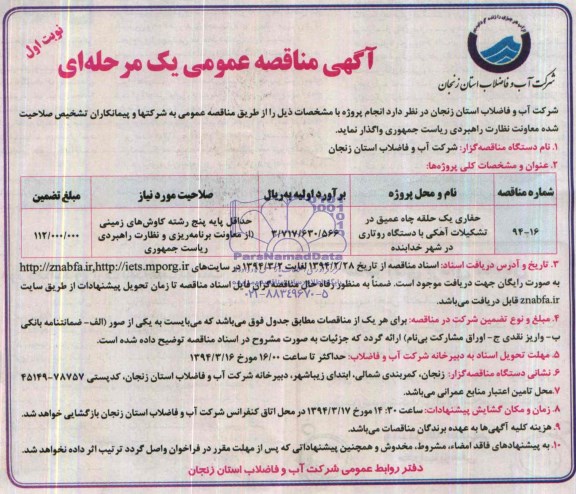 نوبت اول
آگهی مناقصه عمومی یک مرحله‌ای
شرکت آب و فاضلاب استان زنجان
شرکت آب و فاضلاب استان زنجان در نظر دارد انجام پروژه با مشخصات ذیل را از طریق مناقصه عمومی به شرکتها و پیمانکاران تشخیص صلاحیت
شده معاونت نظارت راهبردی ریاست جمهوری واگذار نماید.
۱. نام دستگاه مناقصه‌گزار: شرکت آب و فاضلاب استان زنجان
۲. عنوان و مشخصات کلی پروژه‌ها:
شماره مناقصه نام و محل پروژه برآورد اولیه به‌ریال صلاحیت مورد نیاز مبلغ تضمین
حفاری یک حلقه چاه عمیق در حداقل پایه پنج رشته کاوش‌های زمینی
۹۴-۱۶ تشکیلات آهکی با دستگاه روتاری ۳/۷۱۷/۶۳۰/۵۶۶ (از معاونت برنامه‌ریزی و نظارت راهبردی ۱۱۲/۰۰۰/۰۰۰
در شهر خدابنده ریاست جمهوری
۳. تاریخ و آدرس دریافت اسناد: اسناد مناقصه از تاریخ ۱۳۹۴/۲/۲۸ لغایت ۱۳۹۴/۳/۲ در سایت‌های http://znabfa.ir,http://iets.mporg.ir
به صورت رایگان جهت دریافت موجود است. ضمناً به منظور رفاه حال مناقصه‌گران فایل اسناد مناقصه تا زمان تحویل پیشنهادات از طریق سایت
znabfa.ir قابل دریافت می‌باشد.
۴. مبلغ و نوع تضمین شرکت در مناقصه: برای هر یک از مناقصات مطابق جدول فوق می‌باشد که می‌بایست به یکی از صور (الف- ضمانتنامه بانکی
ب- واریز نقدی ج- اوراق مشارکت بی‌نام) ارائه گردد که جزئیات به صورت مشروح در اسناد مناقصه توضیح داده شده است.
۵. مهلت تحویل اسناد به دبیرخانه شرکت آب و فاضلاب: حداکثر تا ساعت ۱۶/۰۰ مورخ ۱۳۹۴/۳/۱۶
۶. نشانی دستگاه مناقصه‌گزار: زنجان، کمربندی شمالی، ابتدای زیباشهر، دبیرخانه شرکت آب و فاضلاب استان زنجان، کدپستی ۷۸۷۵۷-۴۵۱۴۹
۷. محل تامین اعتبار منابع عمرانی می‌باشد.
۸. زمان و مکان گشایش پیشنهادات: ساعت ۱۴:۳۰ مورخ ۱۳۹۴/۳/۱۷ در محل اتاق کنفرانس شرکت آب و فاضلاب استان زنجان بازگشایی خواهد شد.
۹. هزینه کلیه آگهی‌ها به عهده برندگان مناقصات می‌باشد.
۱۰. به پیشنهادهای فاقد امضاء، مشروط، مخدوش و همچنین پیشنهاداتی که پس از مهلت مقرر در فراخوان واصل گردد ترتیب اثر داده نخواهد شد.
دفتر روابط عمومی شرکت آب و فاضلاب استان زنجان
ParsNamadData
۰۲۱-۸۸۳۴۹۶۷۰-۵